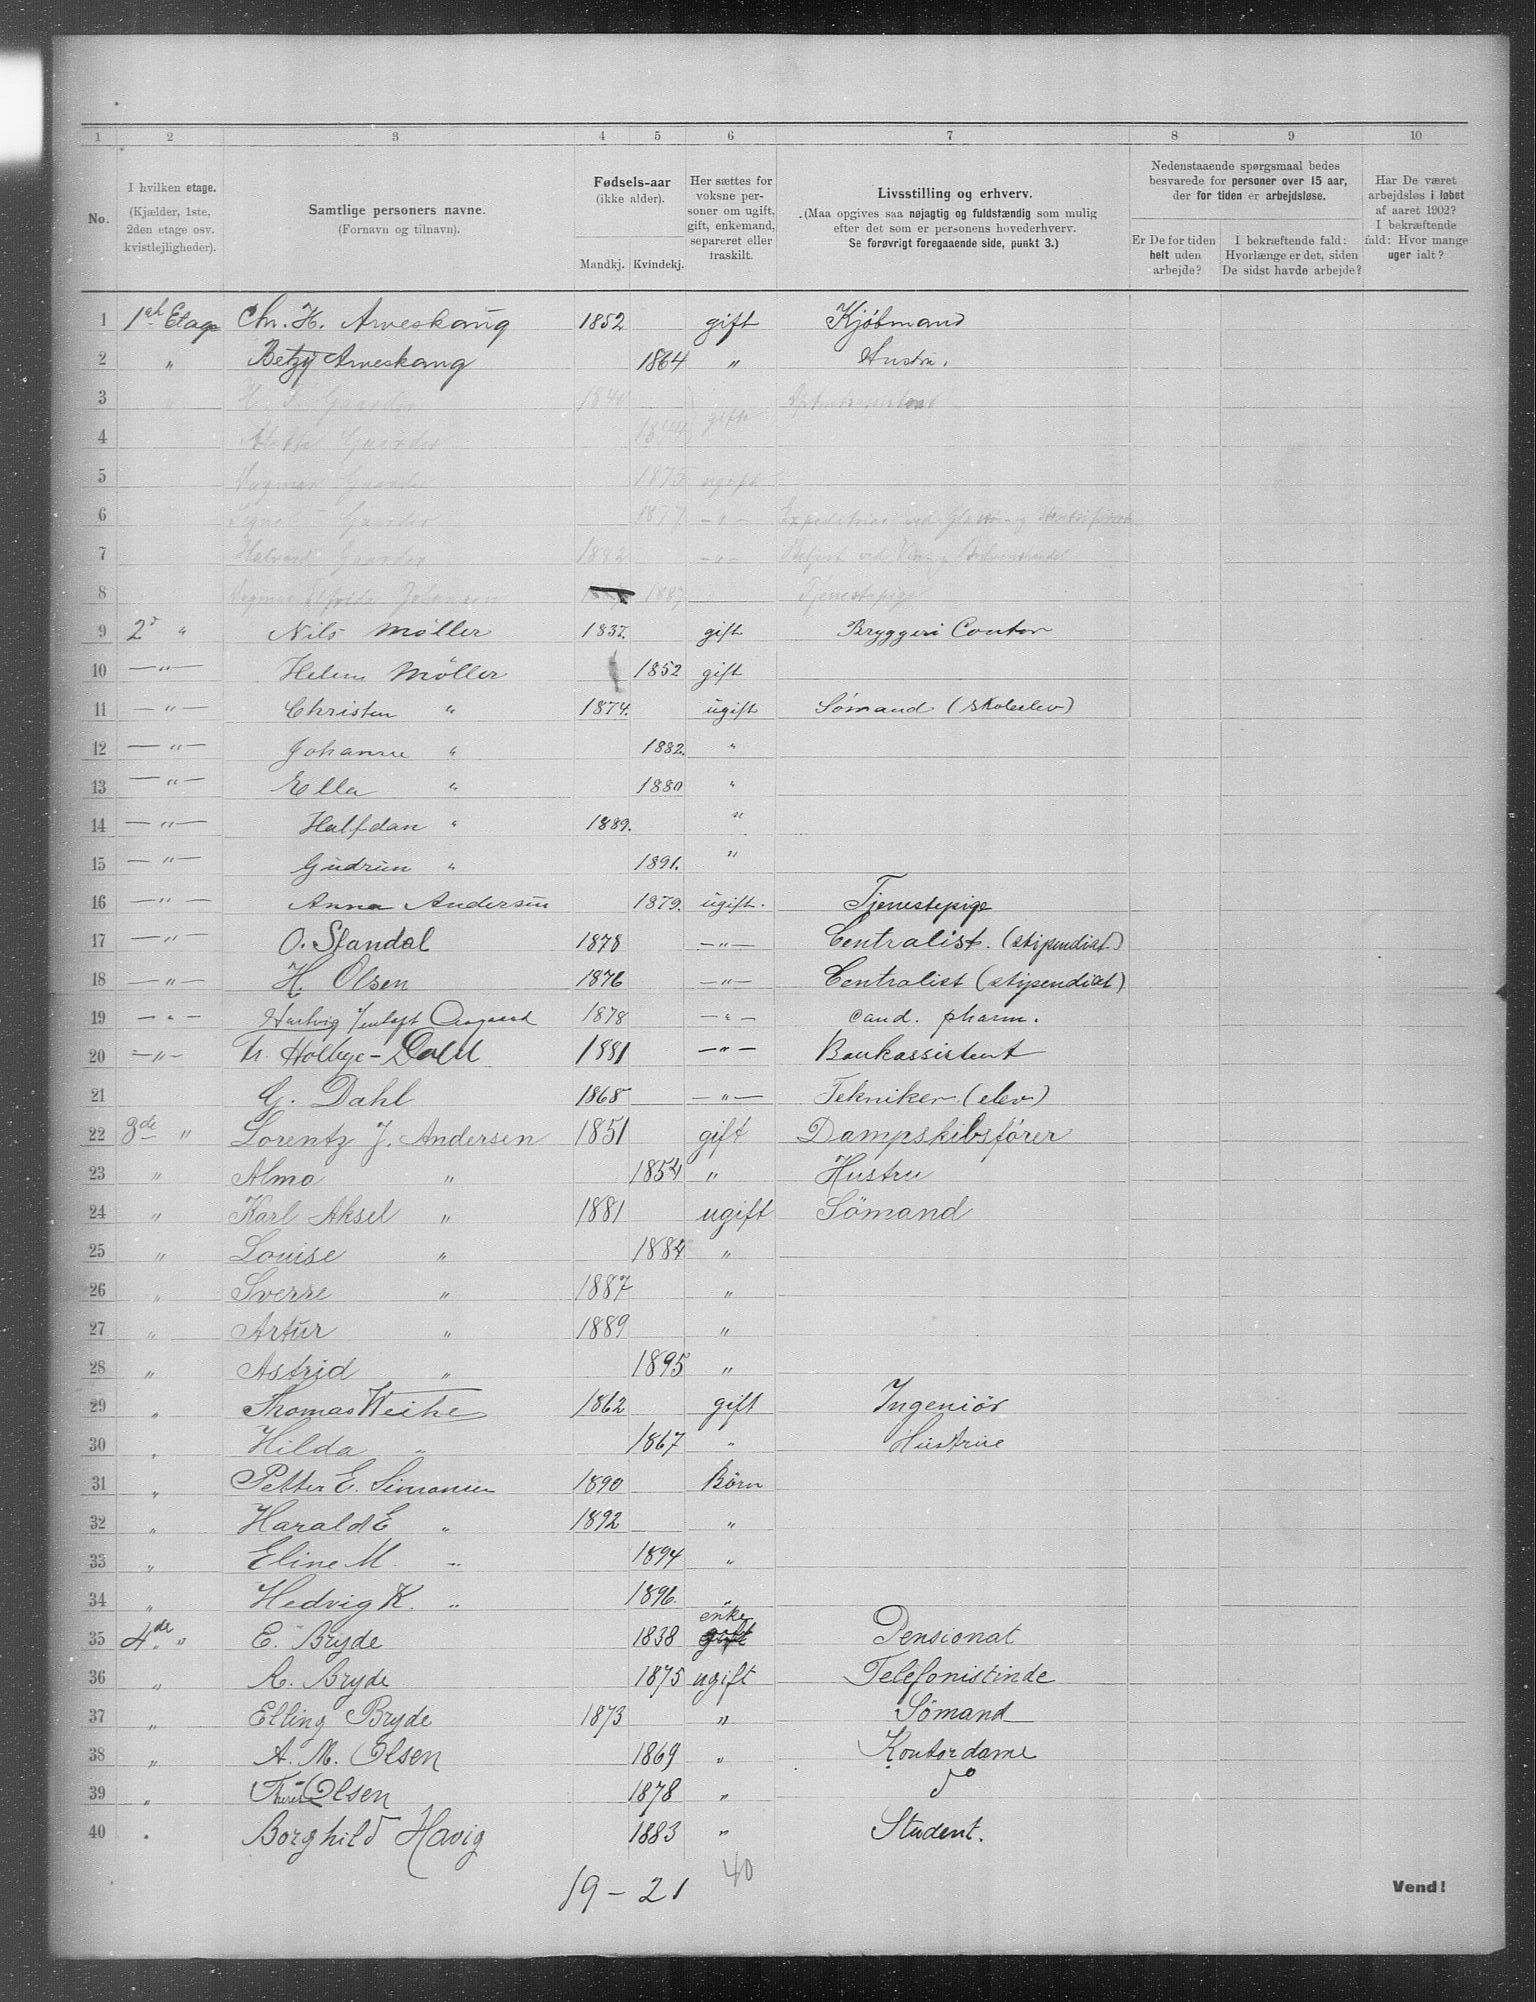 1 2 3 4 5 6 7 8 9 10
No.
I hvilken etage.
(Kjælder, 1ste,
2den etage osv.
kvistlejligheder).
Samtlige personers navne.
(Fornavn og tilnavn).
Fødsels-aar
(ikke alder).
Mandkj. Kvindekj.
Her sættes for
voksne per-
soner om ugift,
gift, enkemand,
separeret eller
fraskilt.
Livsstilling og erhverv.
(Maa opgives saa nøjagtig og fuldstændig som mulig
efter det som er personens hovederhverv.
Se forøvrigt foregaaende side, punkt 3.)
Nedenstaaende spørgsmaal bedes
besvarede for personer over 15 aar,
der for tiden er arbejdsløse.
Er De for tiden
helt uden
arbejde?
I bekræftende fald:
Hvorlænge er det, siden
De sidst havde arbejde?
Har De været
arbejdsløs i løbet
af aaret 1902?
I bekræftende
fald: Hvor mange
uger ialt?
1 1st Etage Chr. H. Arveskoug 1852 gift Kjøbmand
2 " Betzy Arveskoug 1864 " Hustru.
3 " H. Gaarder 1840
4 Gaarder 1844 gift
5 Dagmar Gaarder 1875 ugift
6 Signe Gaarder 1877 -"- Expeditrice ved
7 Halvard Gaarder 1882 -"- Betjent ved
8 Dagmar Johansen 1887 Tjenestepige
9 2d " Nils Møller 1837. gift Bryggeri Contor
10 -"- Helene Møller 1852 gift
11 -"- Christen " 1874. ugift Sømand (skoleelev)
12 -"- Johanne " 1882. "
13 -"- Ella " 1880 "
14 -"- Halfdan " 1889. "
15 -"- Gudrun " 1891. "
16 -"- Anna Andersen 1879. ugift. Tjenestepige
17 -"- O. Standal 1878 -"- Centralist. (stipendiat)
18 -"- H. Olsen 1876 -"- Centralist (stipendiat)
19 -"- Hartvig Aagaard 1878 -"- cand. pharm.
20 -"- Tr. Holbye-Dahl 1881 -"- Bankassistent
21 G. Dahl 1868 -"- Tekniker (elev)
22 3de " Lorentz J. Andersen 1851 gift Dampskibsfører
23 " Alma " 1854 " Hustru
24 " Karl Aksel " 1881 ugift Sömand
25 " Louise " 1884 "
26 " Sverre " 1887 "
27 " Artur " 1889 "
28 " Astrid " 1895 "
29 " Thomas Weihe 1862 gift Ingeniör
30 " Hilda " 1867 " Hustrue
31 " Petter E. Simonsen 1890 Børn
32 " Harald E " 1892 "
33 " Eline M. " 1894 "
34 " Hedvig K. " 1896. "
35 4de " E. Bryde 1838 enke gift Pensionat
36 " R. Bryde 1875 ugift Telefonistinde
37 " Elling Bryde 1873 " Sømand
38 " A. M. Olsen 1869 " Kontordame
39 " Olsen 1878 " do
40 " Borghild Havig 1883 " Student.
19 - 21 40
Vend!